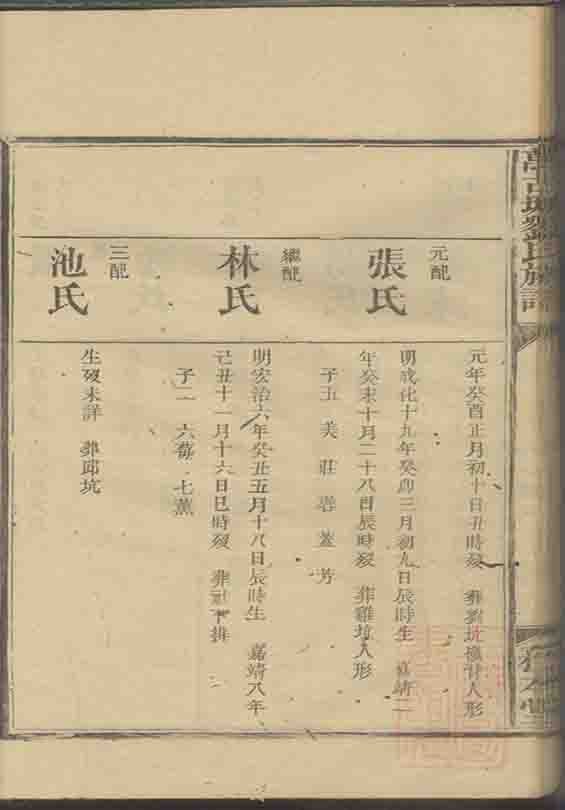 元年癸酉正月初十日丑時歿 葬劉坑橫背人形
元配
張氏
明成化十九年癸卯三月初九日辰時生 嘉靖二
年癸未十月二十八日辰時歿 葬雞坑人形
子五 美 莊 蓉 蓋 芳
繼配
林氏
明宏治六年癸丑五月十八日辰時生 嘉靖八年
己丑十一月十六日巳時歿 葬 下排
子二 六 七薰
三配
池氏
生歿未詳 葬邱坑
劉氏族譜